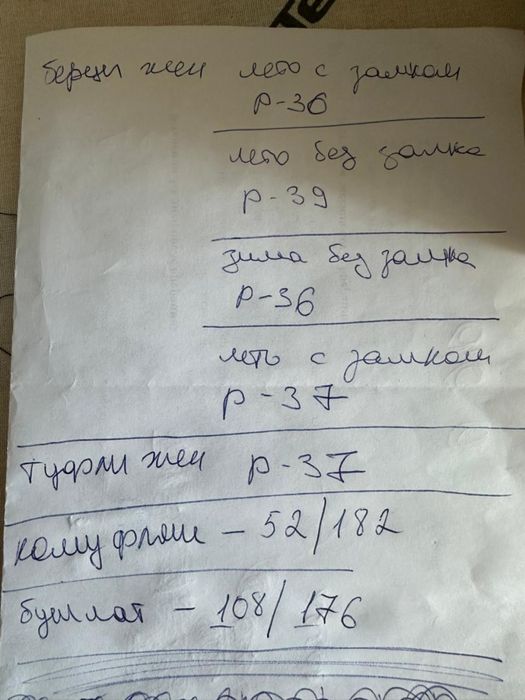 берцы жен лето с замком
р-36
лето без замка
р-39
зима без замка
р-36
лето с замком
р-37
туфли жен р-37
камуфляж - 52/182
бушлат - 108/176